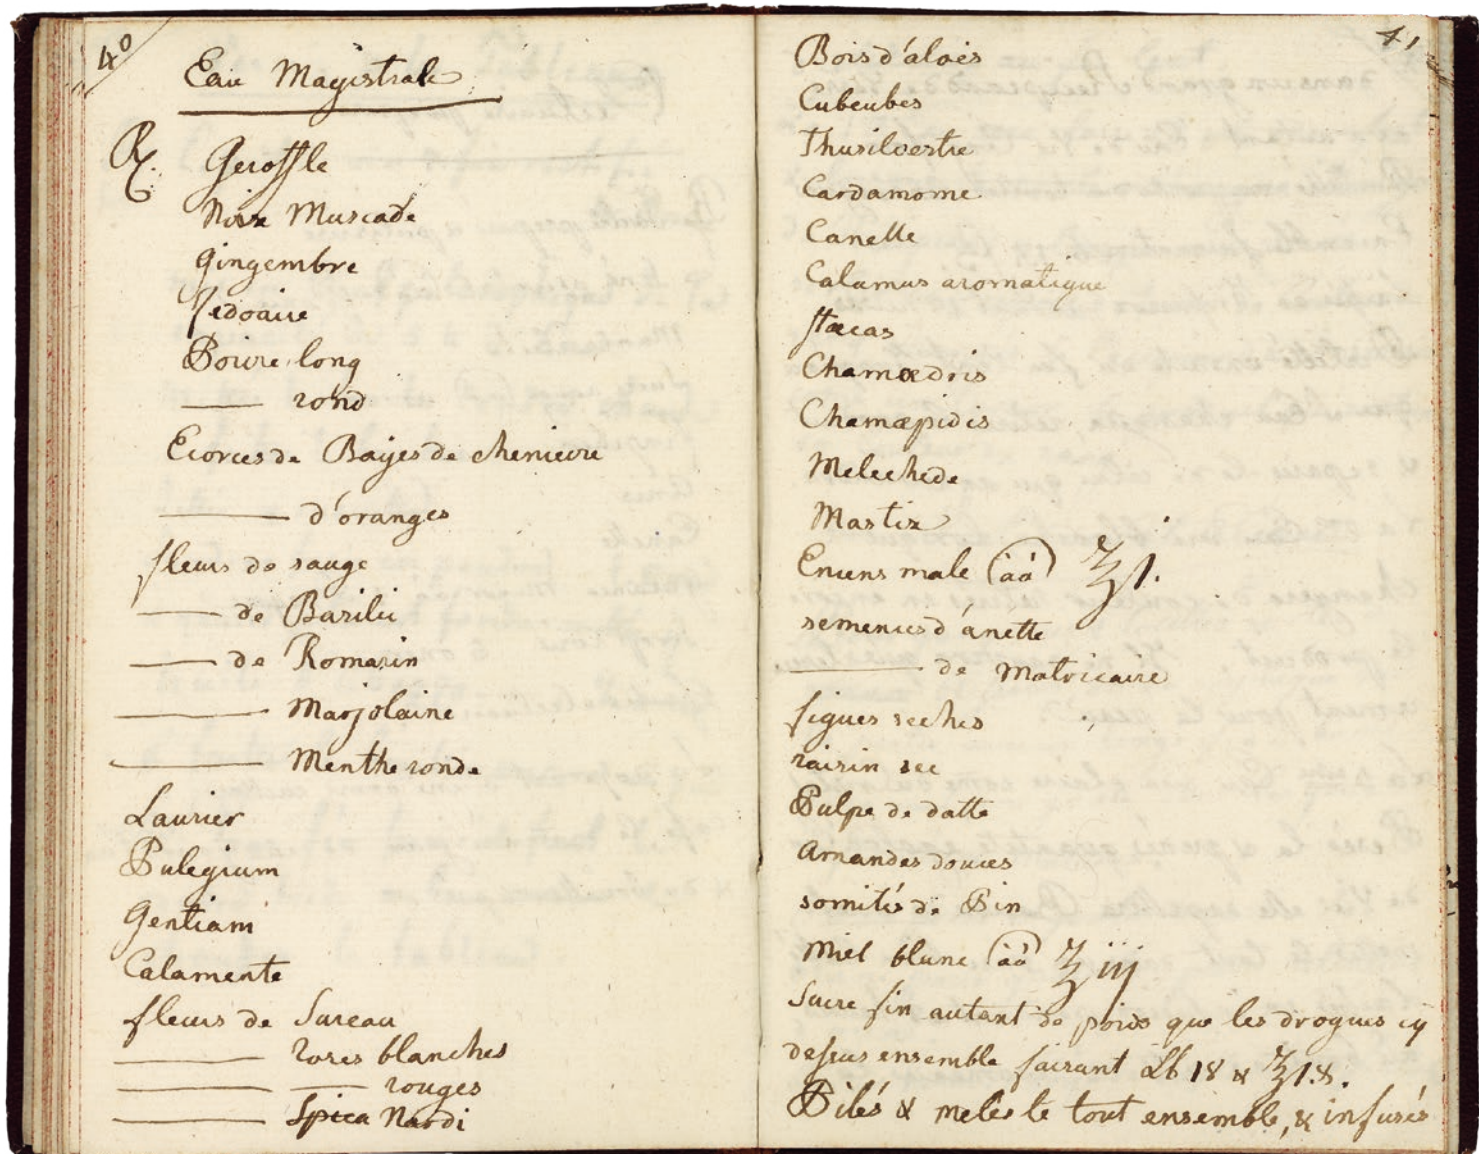 40
Eau Magistrale
℞. Geroffle
Noix Muscade
Gingembre
Zedoaire
Poivre long
—— rond
Ecorces de Bayes de chenievre
—— d'oranges
fleurs de sauge
—— de Basilic
—— de Romarin
—— Marjolaine
—— Menthe ronde
Laurier
Pulegium
Gentiani
Calamente
fleurs de Sureau
—— roses blanches
—— —— rouges
—— Spica Nardi
41
Bois d'aloës
Cubeubes
Thusilvestre
Cardamome
Canelle
Calamus aromatique
stæcas
Chamœdris
Chamæpidis
Melechede
Mastix
Encens male āā ℥ 1.
semences d'anette
—— de Matricaire
figues seches
raisin sec
Pulpe de datte
Amandes douces
somités de Pin
Miel blanc āā ℥ iij
Sucre fin autant de poids que les drogues cy
dessus ensemble faisant lb 18 & ℥ 1.8.
Pilés & melés le tout ensemble, & infusés